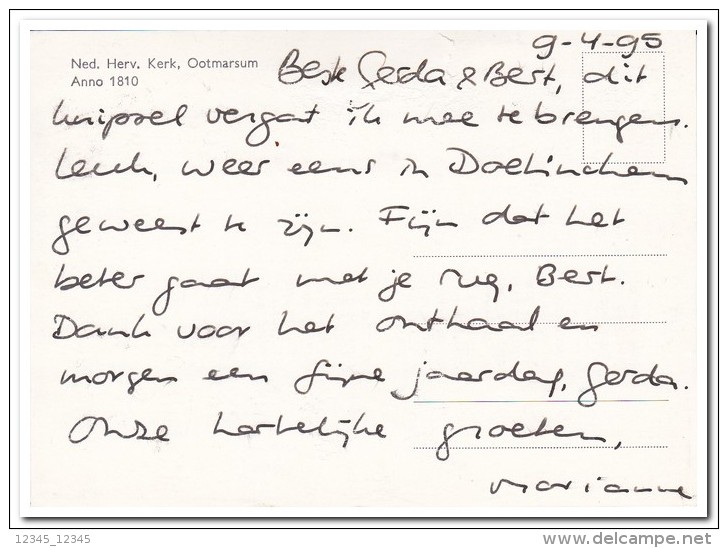 9-4-95
Ned. Herv. Kerk, Ootmarsum
Anno 1810
Beste Gerda & Bert, dit
knipsel vergat ik mee te brengen.
Leuk, weer eens in Doetinchem
geweest te zijn. Fijn dat het
beter gaat met je rug, Bert.
Dank voor het onthaal en
morgen een fijne jaardag, Gerda.
Onze hartelijke groeten,
Marianne
12345_12345
delcampe.net